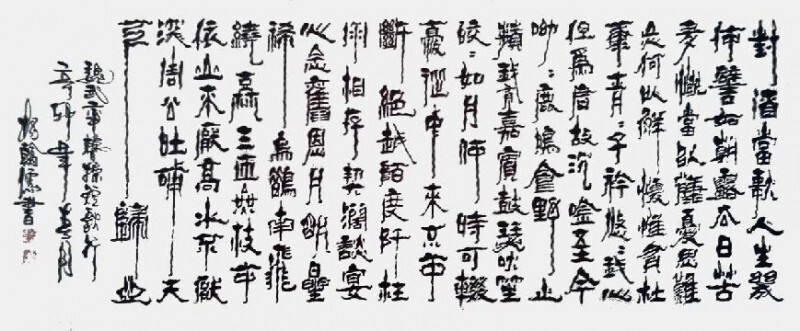 對酒當歌人生幾
何譬如朝露去日苦
多慨當以慷憂思難
忘何以解憂惟有杜
康青々子衿悠々我心
但爲君故沉吟至今
呦々鹿鳴食野之
蘋我有嘉賓鼓瑟吹笙
皎々如月何時可輟
憂從中來不可
斷絕越陌度阡枉
用相存契闊談宴
心念舊恩月明星
稀烏鵲南飛
繞樹三匝無枝可
依山不厭高水不厭
深周公吐哺天
下歸心
魏武帝曹操短歌行
辛卯年春月
書